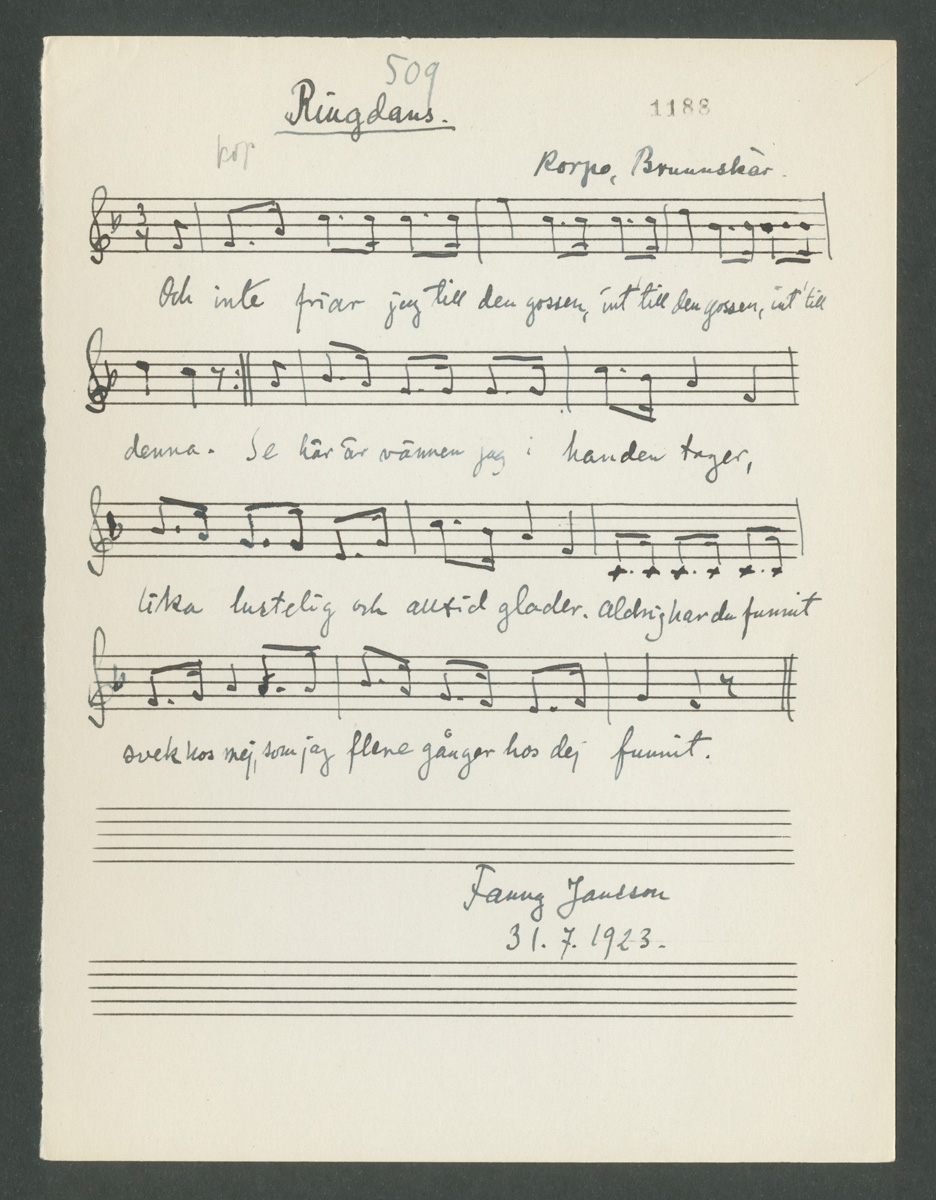 509
Ringdans.
1188
kop
Korpo, Brunnskär.
3
4
Och inte friar jag till den gossen, int' till den gossen, int' till
denna. Se här är vännen jag i handen tager,
lika lustelig och alltid glader. Aldrig har du funnit
svek hos mej, som jag flere gånger hos dej funnit.
Fanny Jansson
31.7.1923.